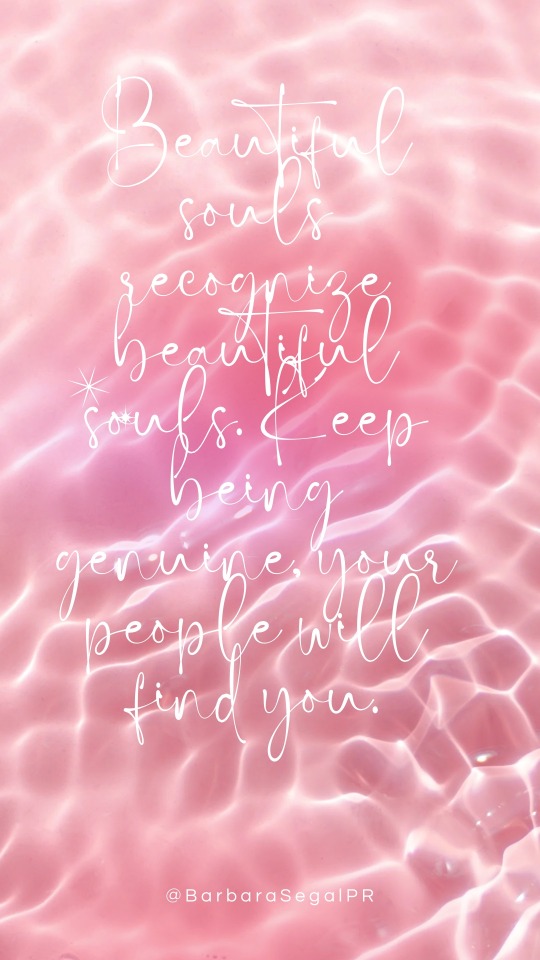 Beautiful
souls
recognize
beautiful
souls. Keep
being
genuine, your
people will
find you.
@BarbaraSegalPR